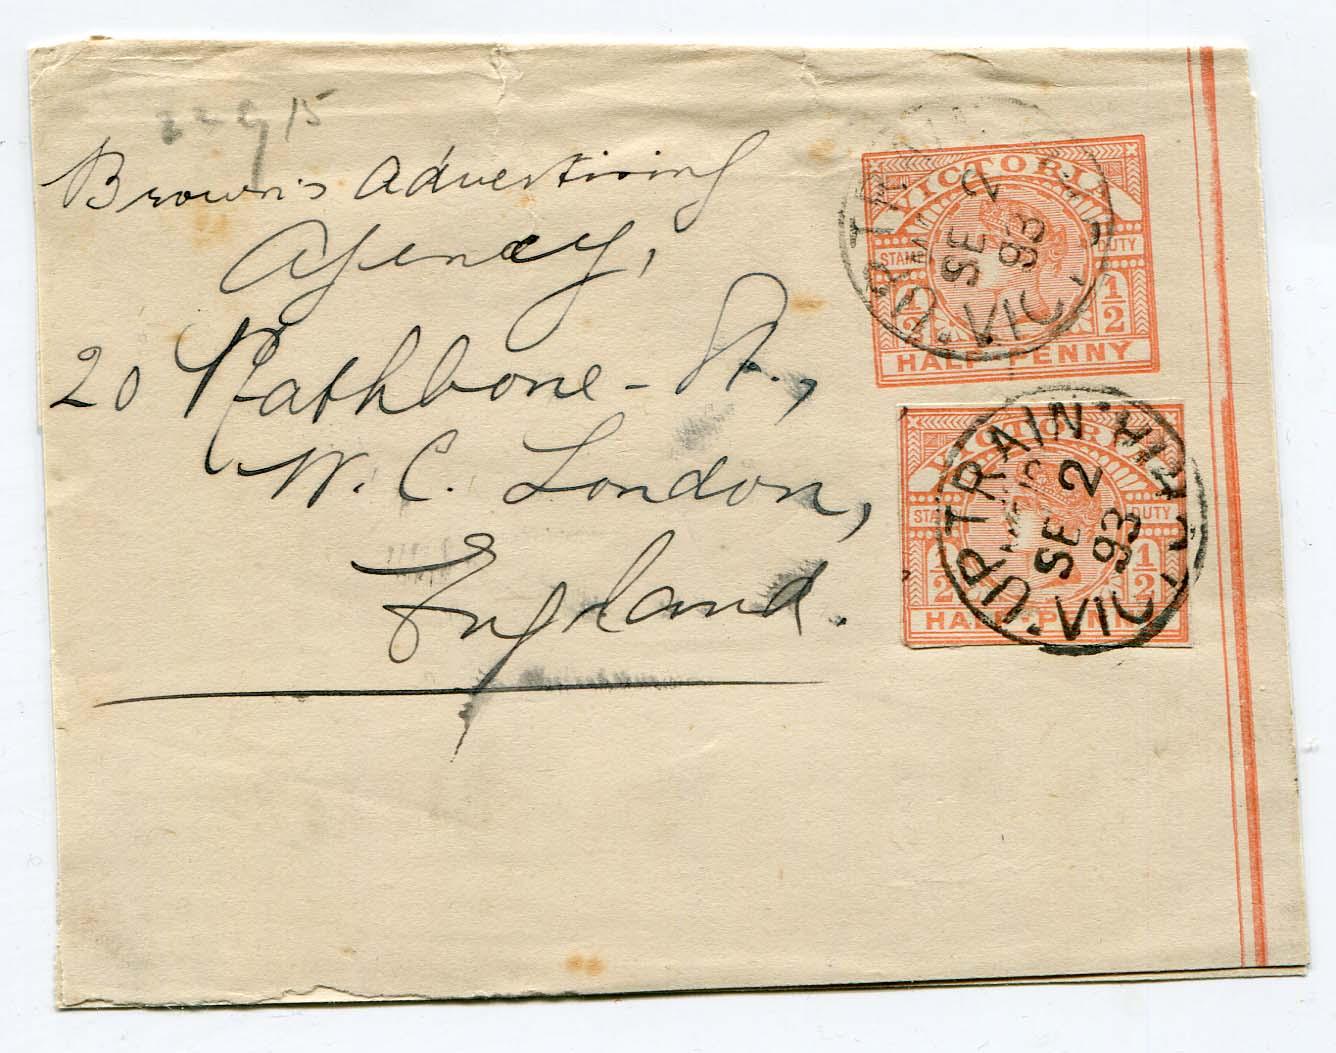 22 9 15
Brown's Advertising
Agency,
20 Rathbone - St.,
W. C. London,
England.
VICTORIA
STAMP DUTY
1/2 1/2
HALF-PENNY
UP TRAIN
SE 2
93
VIC
VICTORIA
STAMP DUTY
1/2 1/2
HALF-PENNY
UP TRAIN
SE 2
93
VICTORIA